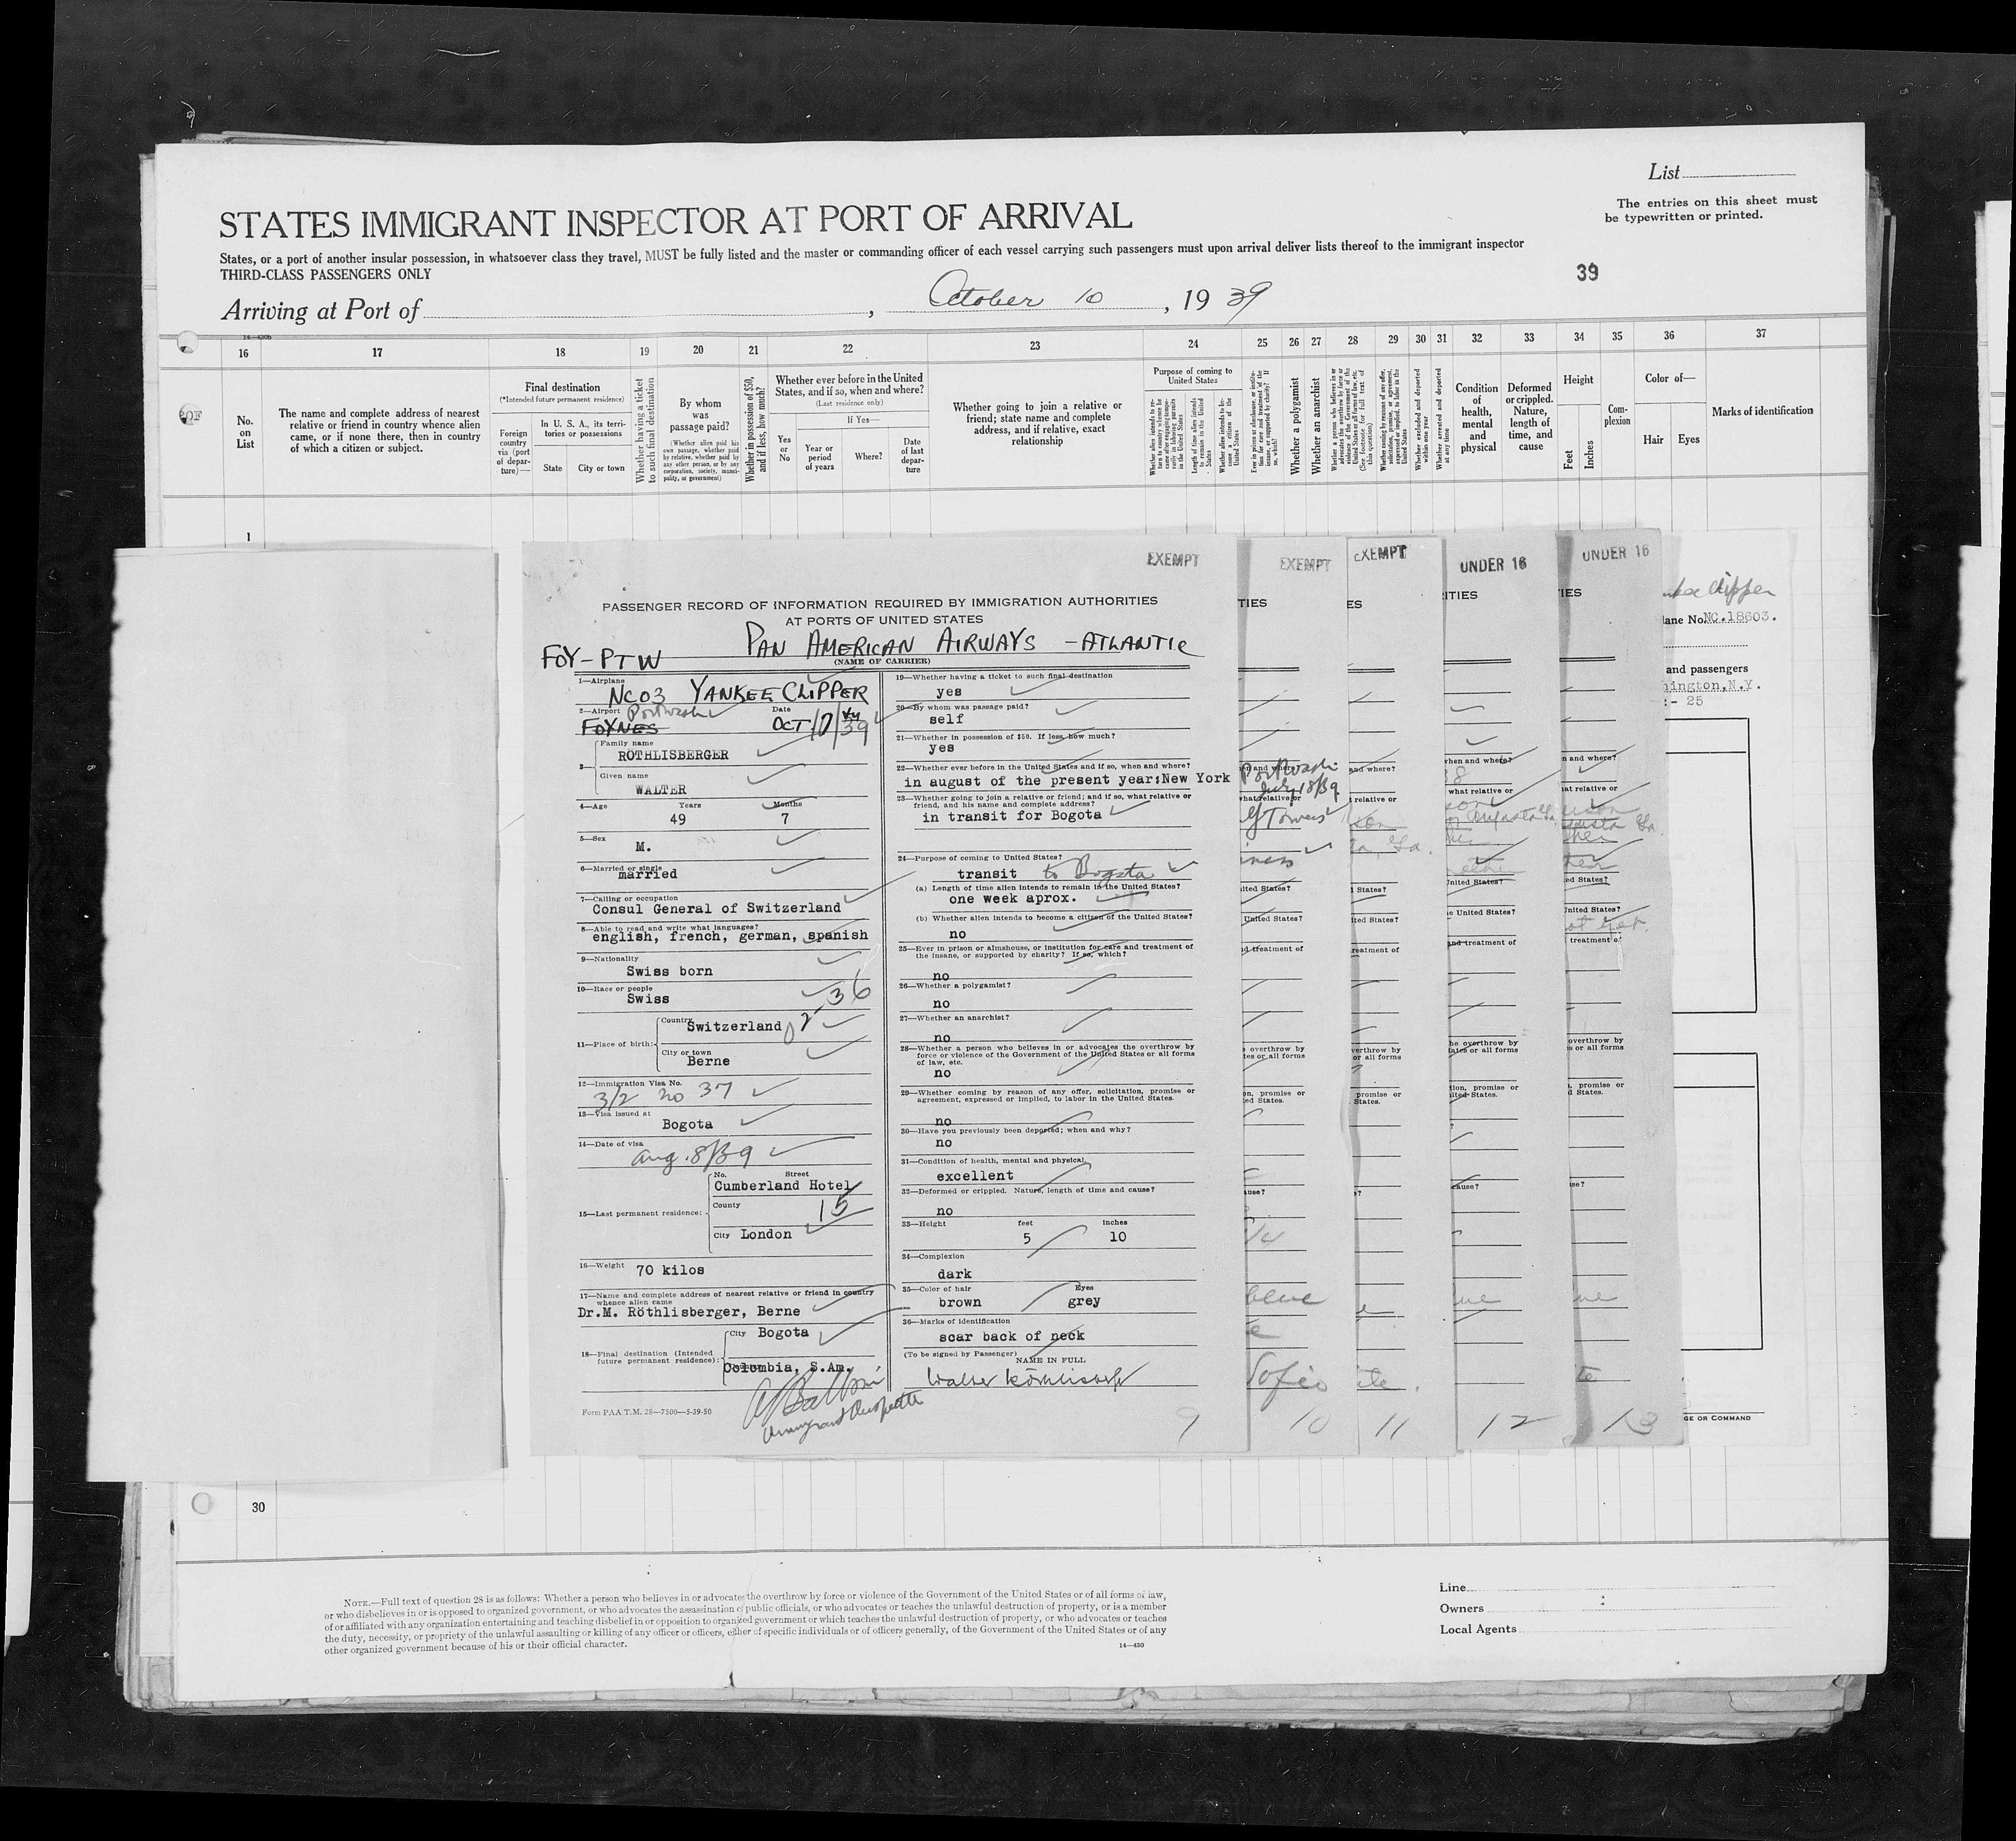 List
The entries on this sheet must
be typewritten or printed.
STATES IMMIGRANT INSPECTOR AT PORT OF ARRIVAL
States, or a port of another insular possession, in whatsoever class they travel, MUST be fully listed and the master or commanding officer of each vessel carrying such passengers must upon arrival deliver lists thereof to the immigrant inspector
THIRD-CLASS PASSENGERS ONLY
39
Arriving at Port of , October 10 , 19 39
14-430b
16 17 18 19 20 21 22 23 24 25 26 27 28 29 30 31 32 33 34 35 36 37
No. on List
The name and complete address of nearest
relative or friend in country whence alien
came, or if none there, then in country
of which a citizen or subject.
Final destination
(*Intended future permanent residence)
Foreign country via (port of departure)—
In U. S. A., its territories or possessions
State
City or town
Whether having a ticket to such final destination
By whom was passage paid?
(Whether alien paid his own passage, whether paid by relative, whether paid by any other person, or by any corporation, society, municipality, or government)
Whether in possession of $50, and if less, how much?
Whether ever before in the United
States, and if so, when and where?
(Last residence only)
Yes or No
If Yes—
Year or period of years
Where?
Date of last departure
Whether going to join a relative or
friend; state name and complete
address, and if relative, exact
relationship
Purpose of coming to United States
Whether a polygamist
Whether an anarchist
Condition of health, mental and physical
Deformed or crippled. Nature, length of time, and cause
Height
Feet
Inches
Complexion
Color of—
Hair
Eyes
Marks of identification
1
EXEMPT
PASSENGER RECORD OF INFORMATION REQUIRED BY IMMIGRATION AUTHORITIES
AT PORTS OF UNITED STATES
FOY-PTW PAN AMERICAN AIRWAYS - ATLANTIC
(NAME OF CARRIER)
1—Airplane
NC03 YANKEE CLIPPER
2—Airport Portwash Date
FOYNES OCT/ /39
3— Family name
RÖTHLISBERGER
Given name
WALTER
4—Age Years Months
49 7
5—Sex
M.
6—Married or single
married
7—Calling or occupation
Consul General of Switzerland
8—Able to read and write what languages?
english, french, german, spanish
9—Nationality
Swiss born
10—Race or people
Swiss 36
11—Place of birth:
Country
Switzerland
City or town
Berne
12—Immigration Visa No.
3/2 no 37
13—Visa issued at
Bogota
14—Date of visa
Aug. 8/39
15—Last permanent residence:
No. Street
Cumberland Hotel
County 15
City London
16—Weight 70 kilos
17—Name and complete address of nearest relative or friend in country
whence alien came
Dr.M. Röthlisberger, Berne
18—Final destination (Intended
future permanent residence):
City Bogota
Columbia, S.Am.
Form PAA T.M. 28—7500—5-39-50
Immigrant Inspector
19—Whether having a ticket to such final destination
yes
20—By whom was passage paid?
self
21—Whether in possession of $50. If less, how much?
yes
22—Whether ever before in the United States and if so, when and where?
in august of the present year:New York
23—Whether going to join a relative or friend; and if so, what relative or
friend, and his name and complete address?
in transit for Bogota
24—Purpose of coming to United States?
transit to Bogota
(a) Length of time alien intends to remain in the United States?
one week aprox.
(b) Whether alien intends to become a citizen of the United States?
no
25—Ever in prison or almshouse, or institution for care and treatment of
the insane, or supported by charity? If so, which?
no
26—Whether a polygamist?
no
27—Whether an anarchist?
no
28—Whether a person who believes in or advocates the overthrow by
force or violence of the Government of the United States or all forms
of law, etc.
no
29—Whether coming by reason of any offer, solicitation, promise or
agreement, expressed or implied, to labor in the United States.
no
30—Have you previously been deported; when and why?
no
31—Condition of health, mental and physical
excellent
32—Deformed or crippled. Nature, length of time and cause?
no
33—Height feet inches
5 10
34—Complexion
dark
35—Color of hair Eyes
brown grey
36—Marks of identification
scar back of neck
(To be signed by Passenger)
NAME IN FULL
Walter Röthlisberger
9
EXEMPT
TIES
Portwash
July 18/39
G Towers
10
EXEMPT
ES
11
UNDER 16
ITIES
12
UNDER 16
IES
13
Clipper
lane No. NC.18603.
and passengers
hington,N.Y.
:- 25
GE OR COMMAND
30
NOTE.—Full text of question 28 is as follows: Whether a person who believes in or advocates the overthrow by force or violence of the Government of the United States or of all forms of law,
or who disbelieves in or is opposed to organized government, or who advocates the assassination of public officials, or who advocates or teaches the unlawful destruction of property, or is a member
of or affiliated with any organization entertaining and teaching disbelief in or opposition to organized government or which teaches the unlawful destruction of property, or who advocates or teaches
the duty, necessity, or propriety of the unlawful assaulting or killing of any officer or officers, either of specific individuals or of officers generally, of the Government of the United States or of any
other organized government because of his or their official character.
14—430
Line
Owners
Local Agents